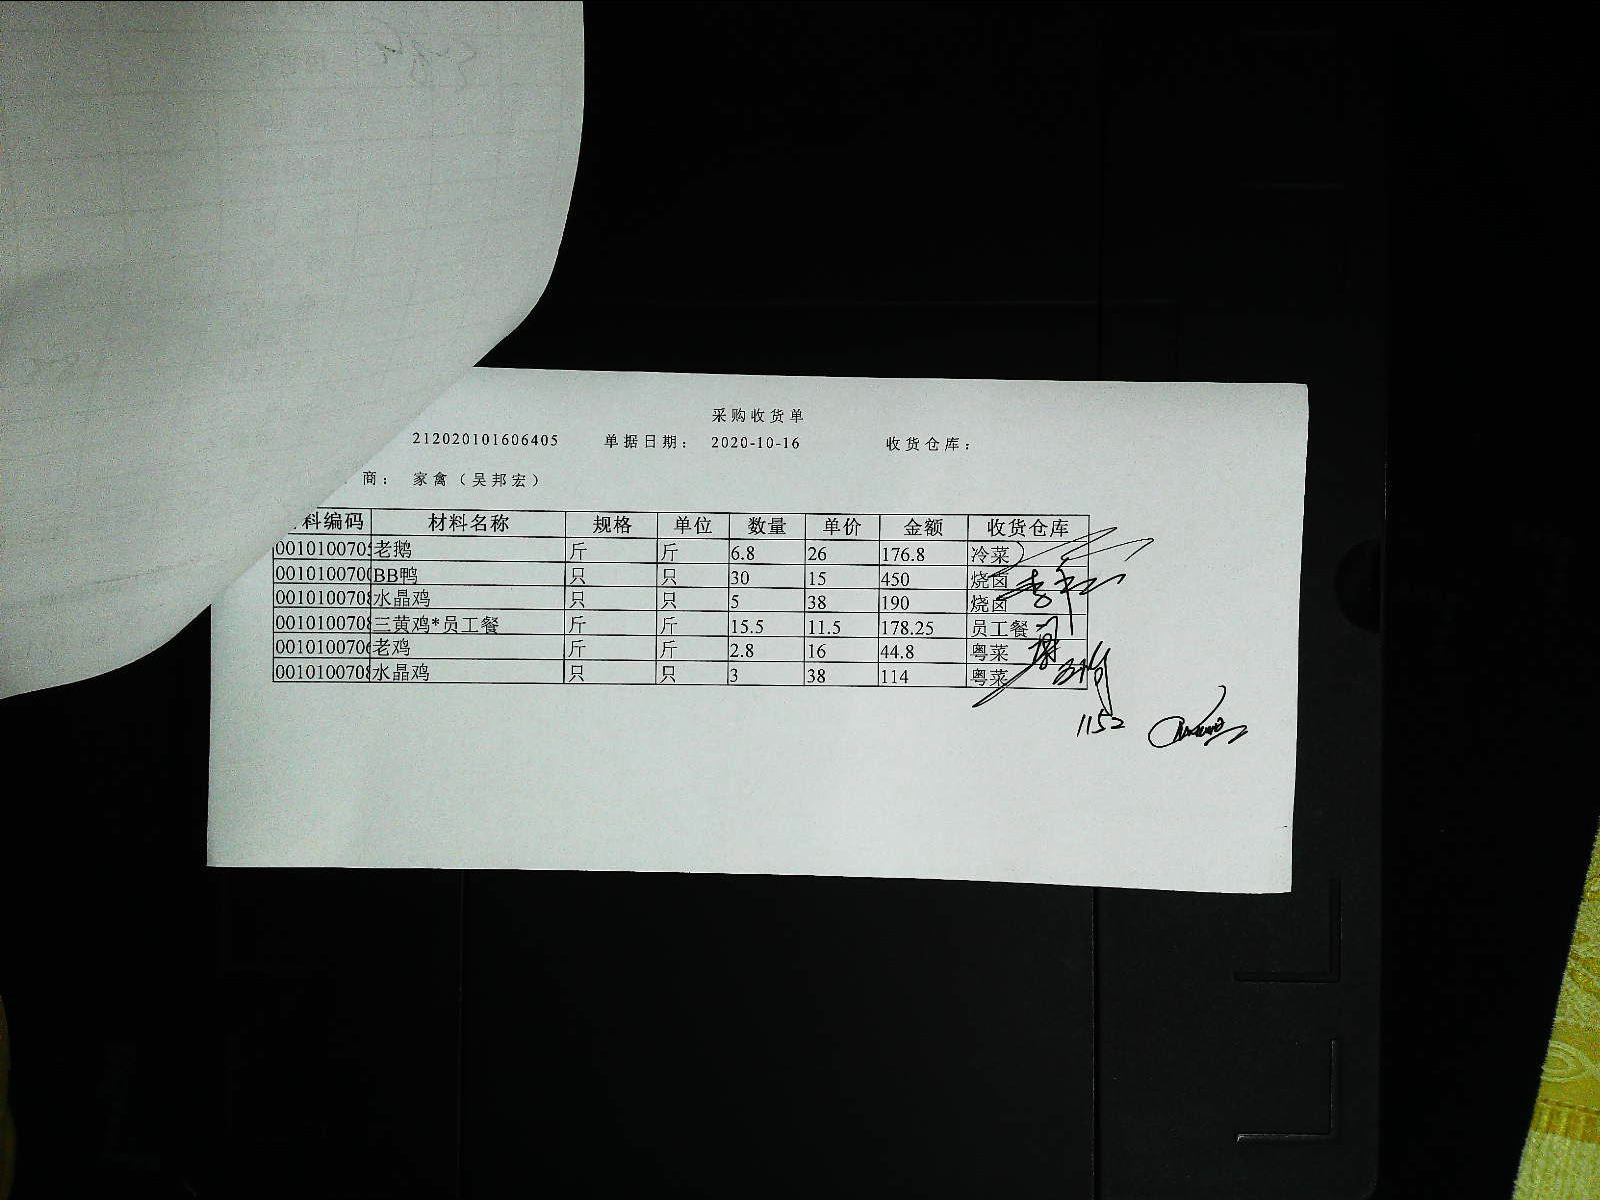 采购收货单
212020101606405 单据日期： 2020-10-16 收货仓库：
商： 家禽（吴邦宏）
料编码 材料名称 规格 单位 数量 单价 金额 收货仓库
001010070 老鹅 斤 斤 6.8 26 176.8 冷菜
001010070 BB鸭 只 只 30 15 450 烧卤
001010070 水晶鸡 只 只 5 38 190 烧卤
001010070 三黄鸡*员工餐 斤 斤 15.5 11.5 178.25 员工餐
001010070 老鸡 斤 斤 2.8 16 44.8 粤菜
001010070 水晶鸡 只 只 3 38 114 粤菜
1152